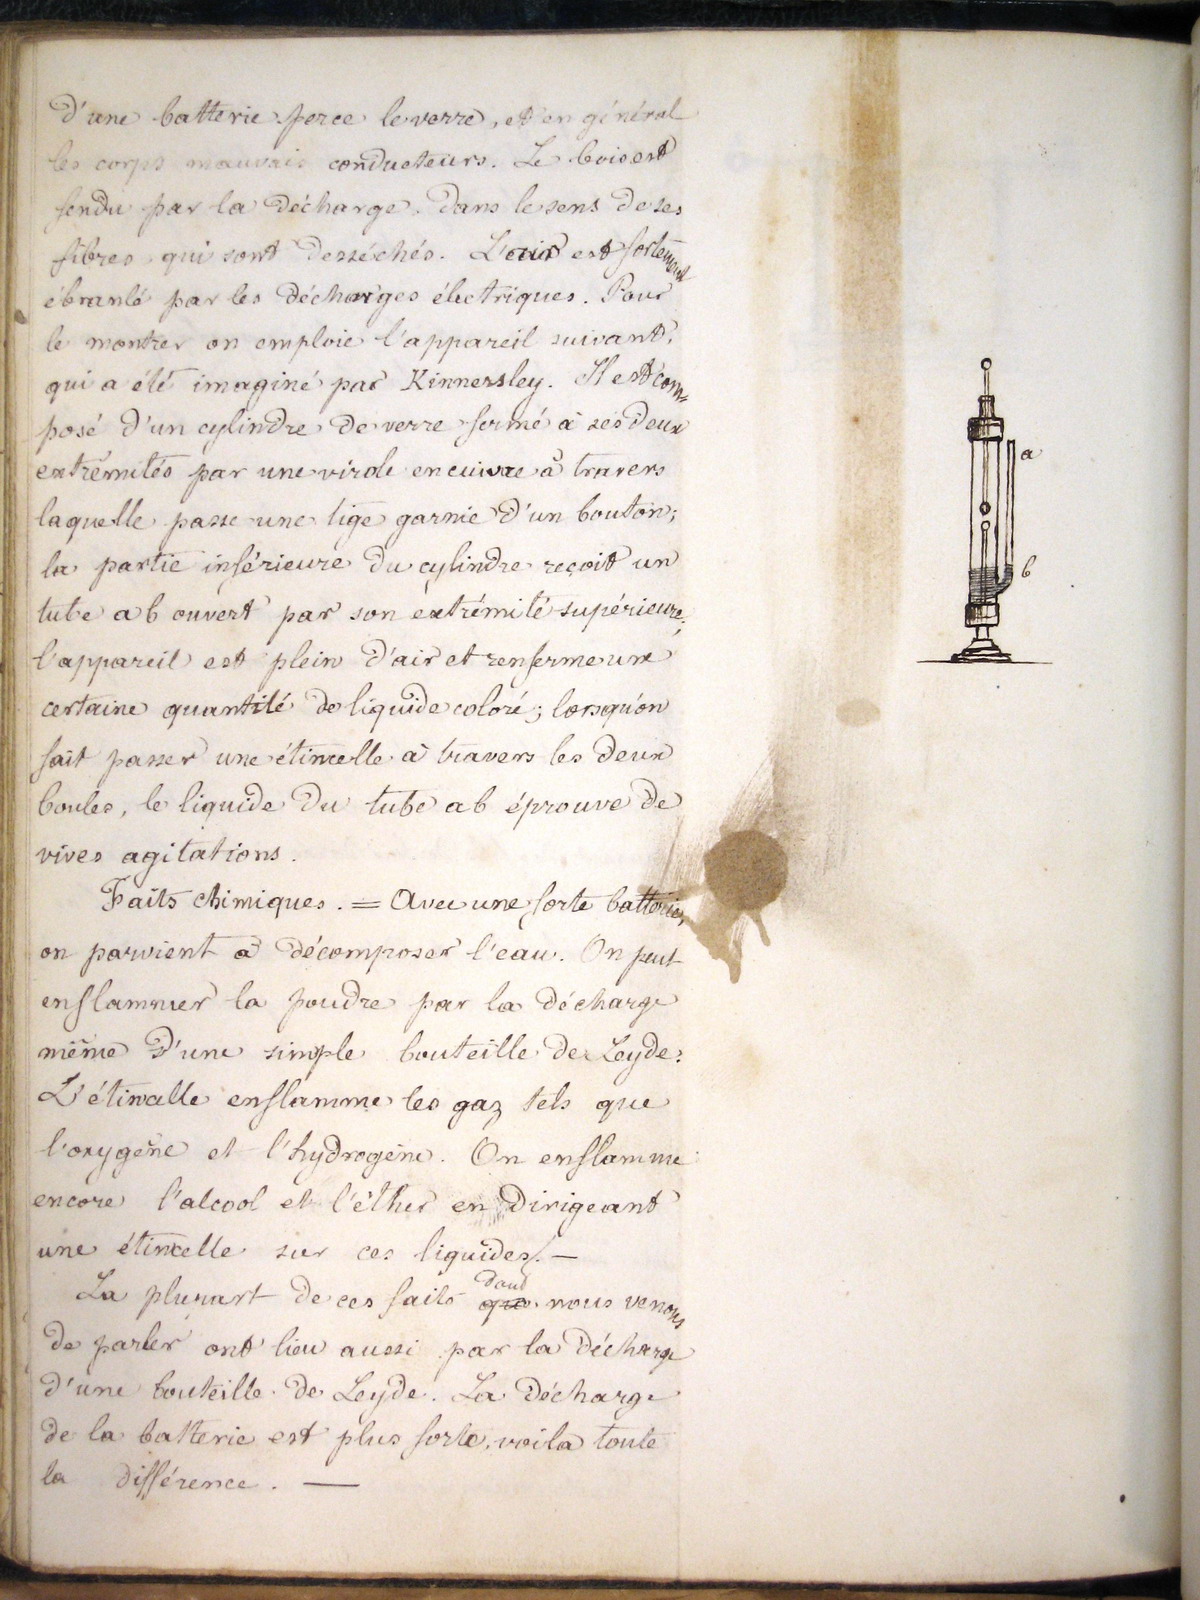 d'une batterie perce le verre, et en général
les corps mauvais conducteurs. Le bois est
fendu par la décharge dans le sens de ses
fibres qui sont desséchés. L'air est fortement
ébranlé par les décharges électriques. Pour
le montrer on emploie l'appareil suivant,
qui a été imaginé par Kinnersley. Il est com=
posé d'un cylindre de verre fermé à ses deux
extrémités par une virole en cuivre à travers
laquelle passe une tige garnie d'un bouton;
la partie inférieure du cylindre reçoit un
tube ab ouvert par son extrémité supérieure;
l'appareil est plein d'air et renferme une
certaine quantité de liquide coloré; lorsqu'on
fait passer une étincelle à travers les deux
boules, le liquide du tube ab éprouve de
vives agitations.
Faits chimiques. = Avec une forte batterie,
on parvient à décomposer l'eau. On peut
enflammer la poudre par la décharge
même d'une simple bouteille de Leyde.
L'étincelle enflamme les gaz tels que
l'oxygène et l'hydrogène. On enflamme
encore l'alcool et l'éther en dirigeant
une étincelle sur ces liquides. —
La plupart de ces faits que dont nous venons
de parler ont lieu aussi par la décharge
d'une bouteille de Leyde. La décharge
de la batterie est plus forte, voila toute
la différence. —
a
b